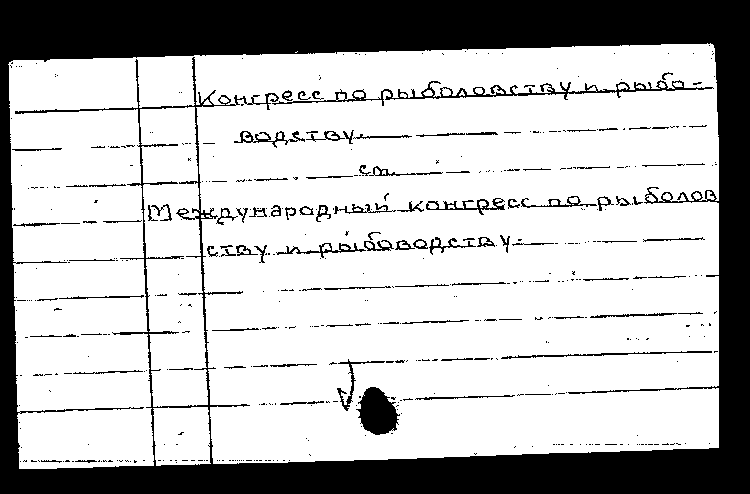 Конгресс по рыболовству и рыбо-
водству.
см.
Международный конгресс по рыболов
ству и рыбоводству.